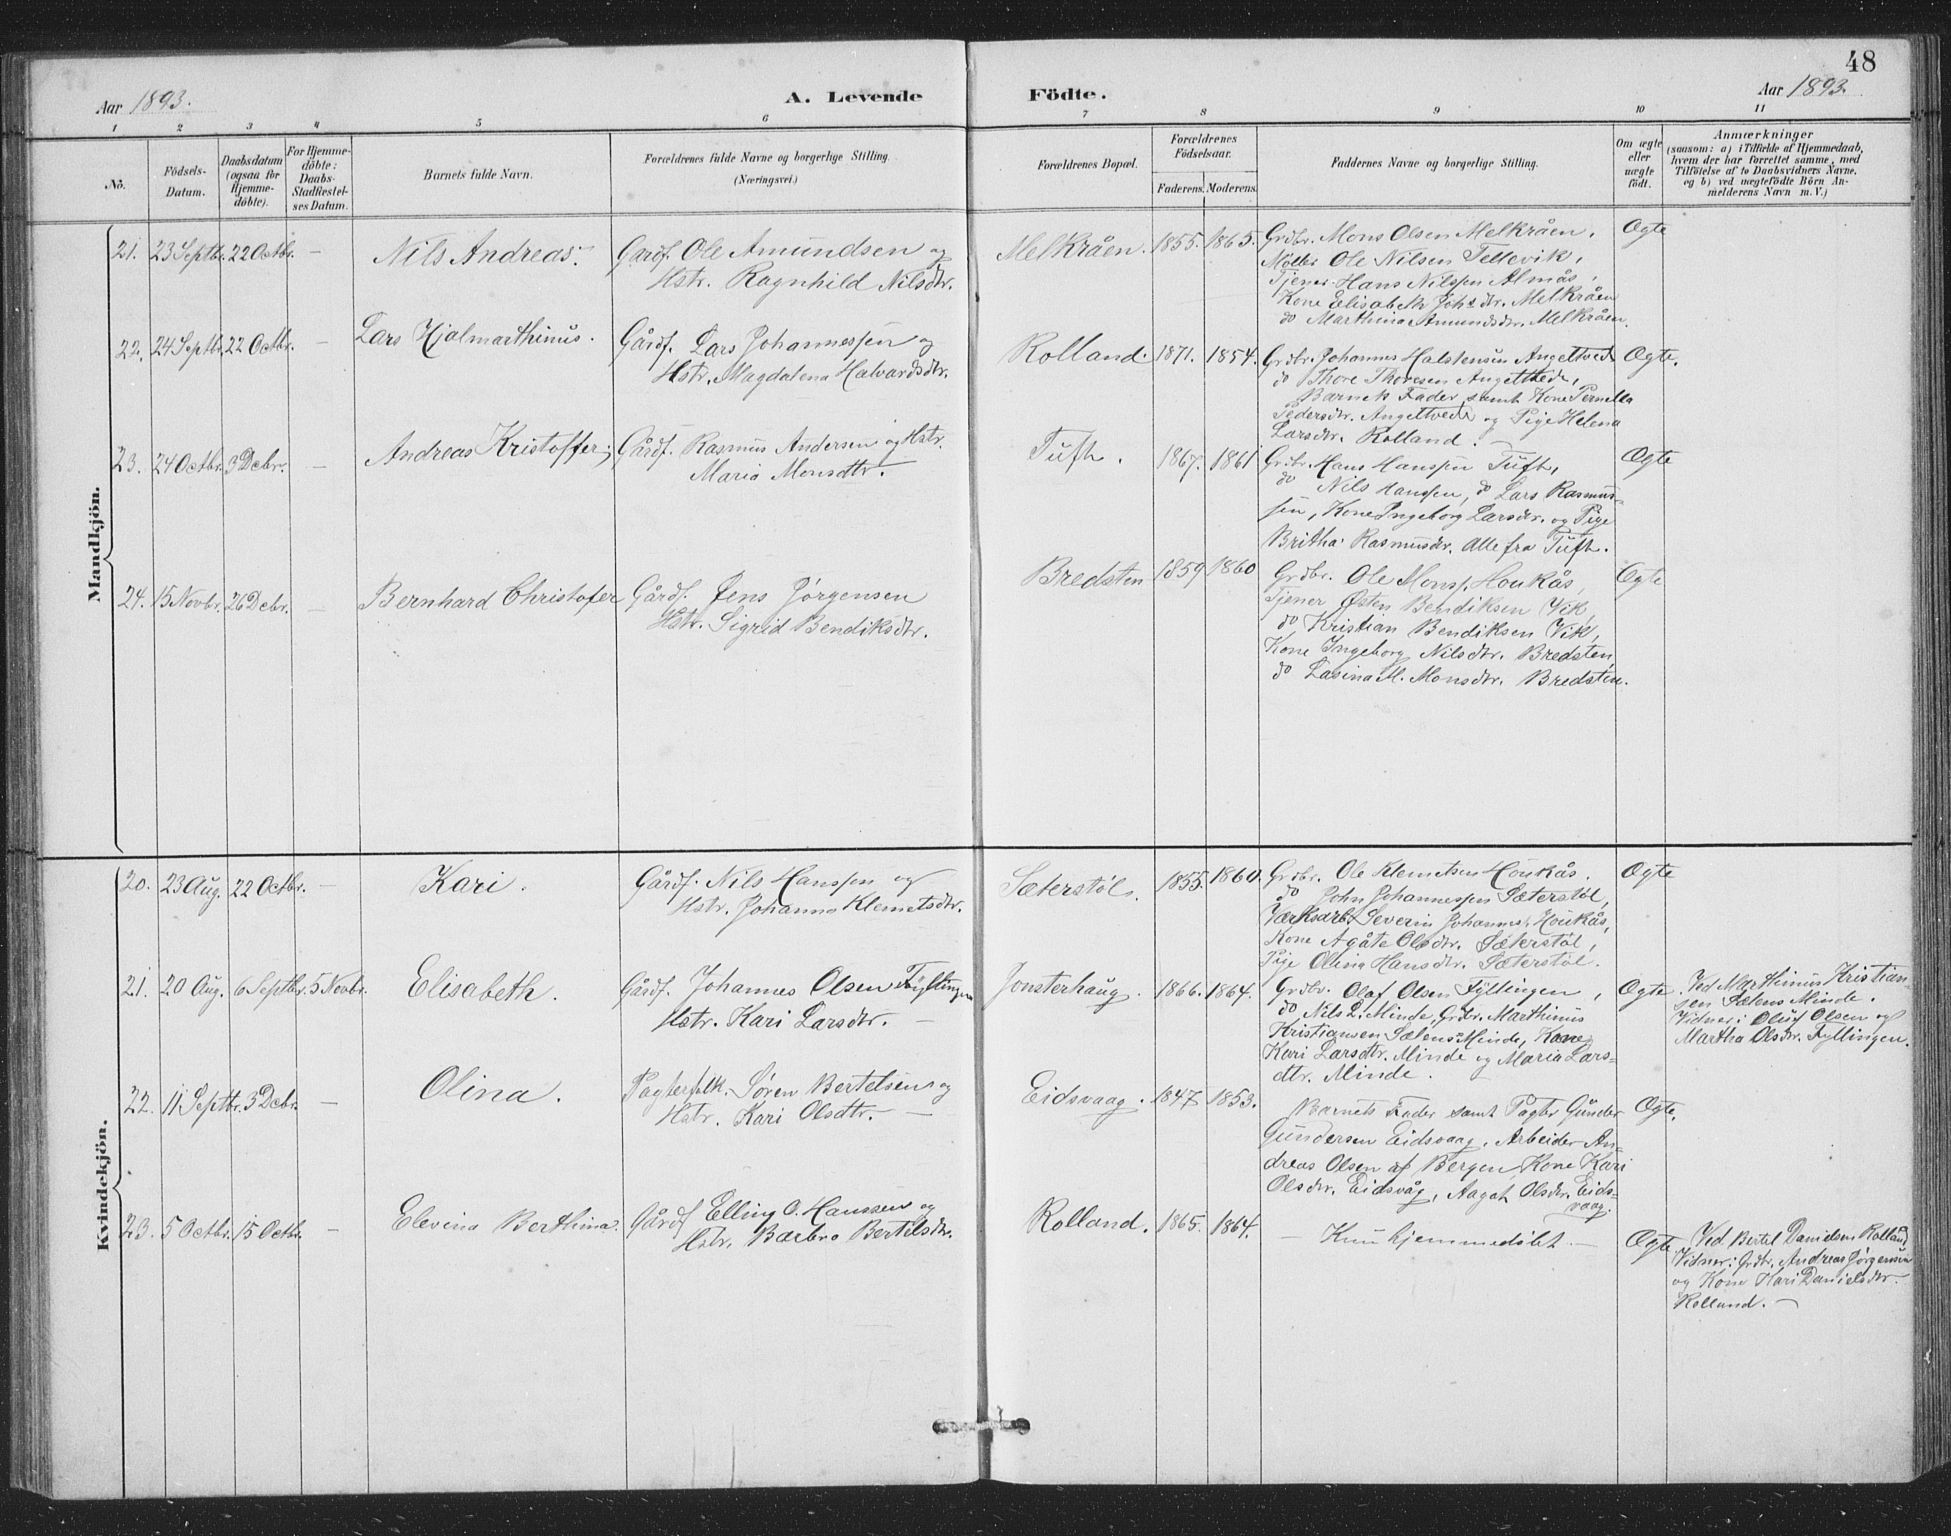 48
Aar 1893.
A. Levende
Födte.
Aar 1893.
1 2 3 4 5 6 7 8 9 10 11
No.
Födsels-
Datum.
Daabsdatum
(ogsaa for
Hjemme-
döbte).
For Hjemme-
döbte:
Daabs-
Stadfæstel-
ses Datum.
Barnets fulde Navn.
Forældrenes fulde Navne og borgerlige Stilling.
(Næringsvei.)
Forældrenes Bopæl.
Forældrenes
Födselsaar.
Faderens. Moderens.
Faddernes Navne og borgerlige Stilling.
Om ægte
eller
uægte
födt.
Anmærkninger
(saasom: a) i Tilfælde af Hjemmedaab,
hvem der har forrettet samme, med
Tilföielse af to Daabsvidners Navne,
og b) ved uægtefödte Börn An-
melderens Navn m. V.)
Mandkjön.
21. 23 Septbr. 22 Octbr. — Nils Andreas. Gaardf. Ole Amundsen og
Hstr. Ragnhild Nilsdtr.
Melkråen. 1855. 1865. Grdbr. Mons Olsen Melkråen,
Møller Ole Nilsen Tellevik,
Tjener Hans Nilssen Almås,
Kone Elisabeth Johsdtr. Melkråen
do Marthina Amundsdtr. Melkråen.
Ægte
22. 24 Septbr. 22 Octbr. — Lars Hjalmarthinus. Gårdf. Lars Johannessen og
Hstr. Magdalena Halvardsdtr.
Rolland. 1871. 1854. Grdbr. Johannes Halstensen Angeltvedt
do Thore Thoresen Angeltvedt,
Barnets Fader, samt Kone Pernella
Pedersdtr. Angeltvedt og Pige Helena
Larsdtr. Rolland.
Ægte.
23. 24 Octbr. 3 Dcbr. — Andreas Kristoffer; Gårdf. Rasmus Andersen og Hstr.
Maria Monsdtr.
Tufte. 1867. 1861 Grdbr. Hans Hanssen Tuft,
do Nils Hanssen, do Lars Rasmus-
sen, Kone Ingeborg Larsdtr. og Pige
Britha Rasmusdr. Alle fra Tuft.
Ægte
24. 15 Novbr. 26 Dcbr. — Bernhard Christofer Gårdf. Jens Jørgensen
Hstr. Sigrid Bendiksdtr.
Bredsten 1859 1860 Grdbr. Ole Monss. Houkås,
Tjener Østen Bendiksen Vik,
do Kristian Bendiksen Vik,
Kone Ingeborg Nilsdtr. Bredsten,
do Lasina M. Monsdtr. Bredsten.
Ægte
Kvindekjön.
20. 23 Aug. 22 Octbr. — Kari. Gårdf. Nils Hanssen og
Hstr. Johanna Klemetsdtr.
Sæterstøl. 1855. 1860. Grdbr. Ole Klemetsen Houkås.
do John Johannessen Sæterstøl,
Værksarb. Severin Johannes. Houkås,
Kone Agåte Olsdtr. Sæterstøl,
Pige Olina Hansdtr. Sæterstøl.
Ægte
21. 20 Aug. 6 Septbr. 5 Novbr. Elisabeth. Gårdf. Johannes Olsen Fyllingen
Hstr. Kari Larsdtr. —
Jonsterhaug. 1866. 1864. Grdbr. Olaf Olsen Fyllingen,
do Nils L. Minde, Grdbr. Marthinus
Kristiansen Sælens Minde, Kone
Kari Larsdtr. Minde og Maria Lars-
dtr. Minde.
Ægte. Ved Marthinus Kristian-
sen Sælens Minde.
Vidner: Oluf Olsen og
Martha Olsdtr. Fyllingen.
22. 11 Septbr. 3 Dcbr. — Olina. Pagterfolk Søren Bertelsen og
Hstr. Kari Olsdtr. —
Eidsvaag. 1847 1853. Barnets Fader samt Pagter Gunder
Gundersen Eidsvaag, Arbeider An-
dreas Olsen af Bergen, Kone Kari
Olsdtr. Eidsvåg, Aagot Olsdtr. Eids-
vaag.
Ægte.
23. 5 Octbr. 15 Octbr. — Elevina Berthina. Gårdf Elling O. Hanssen og
Hstr. Barbro Bertelsdtr.
Rolland. 1865. 1864. — Kun hjemmedøbt — Ægte Ved Bertel Danielsen Rolland,
Vidner: Grdbr. Andreas Jørgensen
og Kone Kari Danielsdtr.
Rolland. —